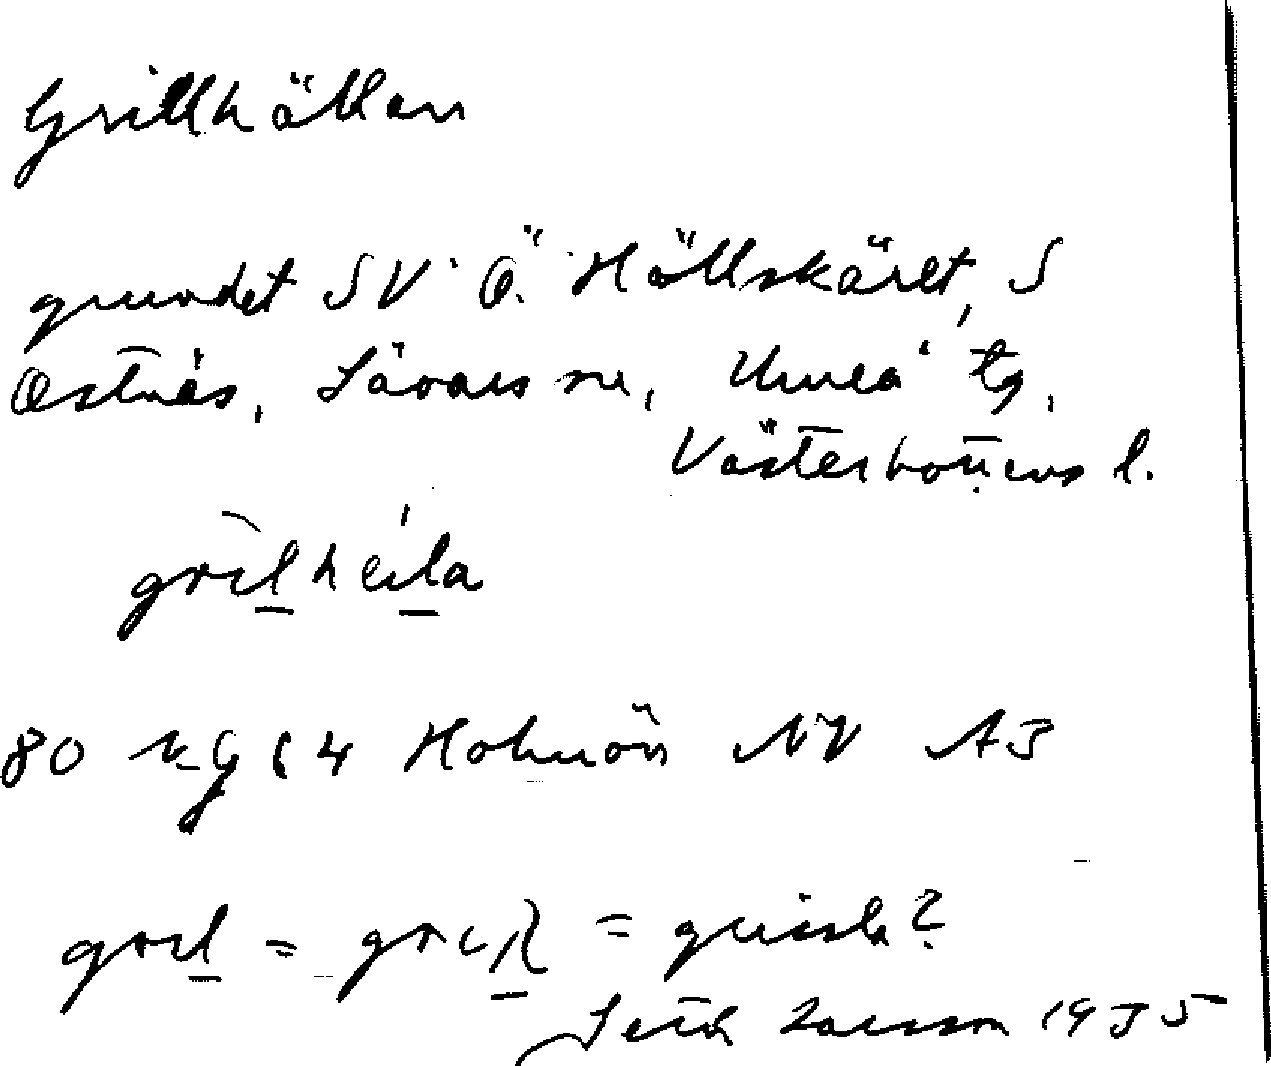 Grillhällan
grundet SV Ö. Hällskäret, S
Ostnäs, Sävars sn, Umeå tg,
Västerbottens l.
grilhella
80 Holmön NV A3
gril = = gussk?
Seth Larsson 1935